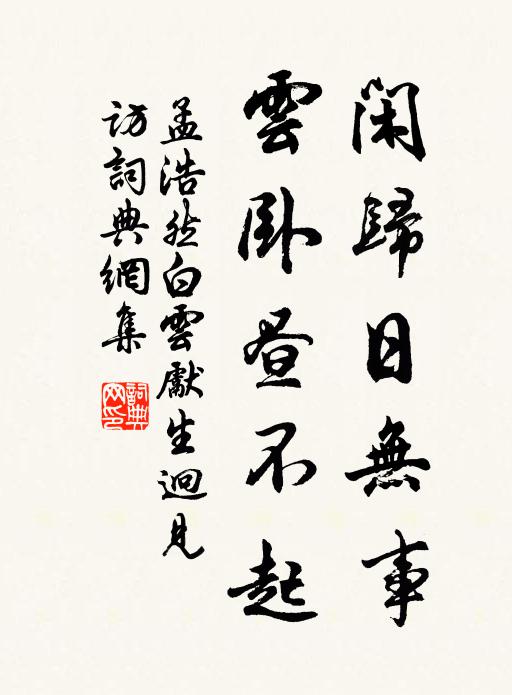 閑歸日無事
雲卧晝不起
孟浩然白雲獻生迴見
訪詞典網集
詞典
网印